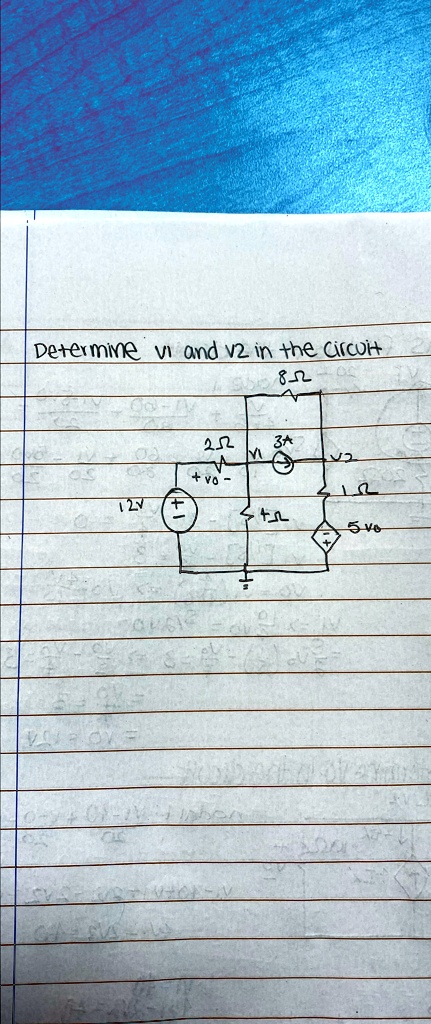 Determine v1 and v2 in the circuit
8Ω
2Ω V1 3A V2
+ vo -
12V + - 4Ω 1Ω
- + 5vo